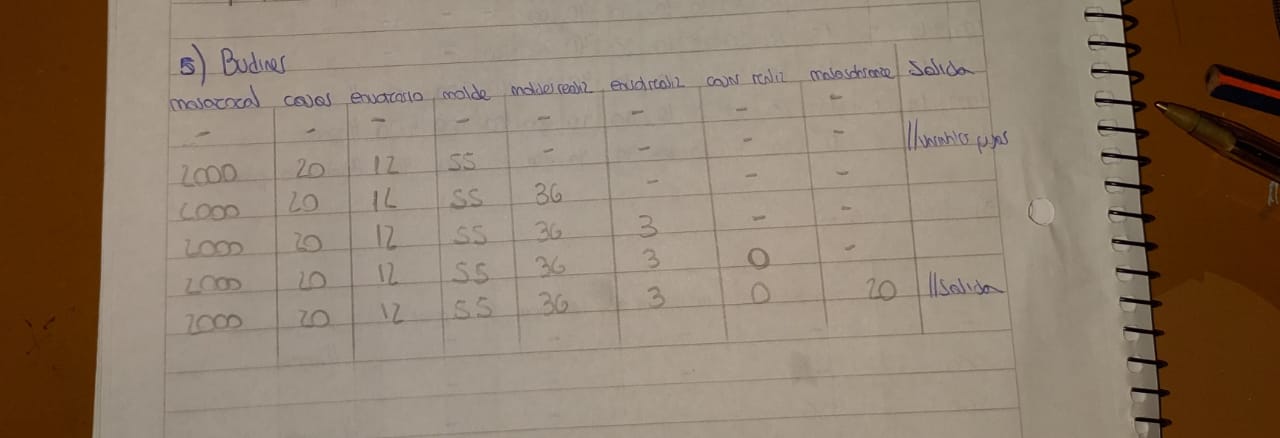 5) Budines
masatotal cajas envacasio molde moldes realiz envidrealiz cajas realiz masasobrante Salida
- - - - - - - -
2000 20 12 55 - - - - //variables fijas
2000 20 12 55 36 - - -
2000 20 12 55 36 3 - -
2000 20 12 55 36 3 0 -
2000 20 12 55 36 3 0 20 //Salida